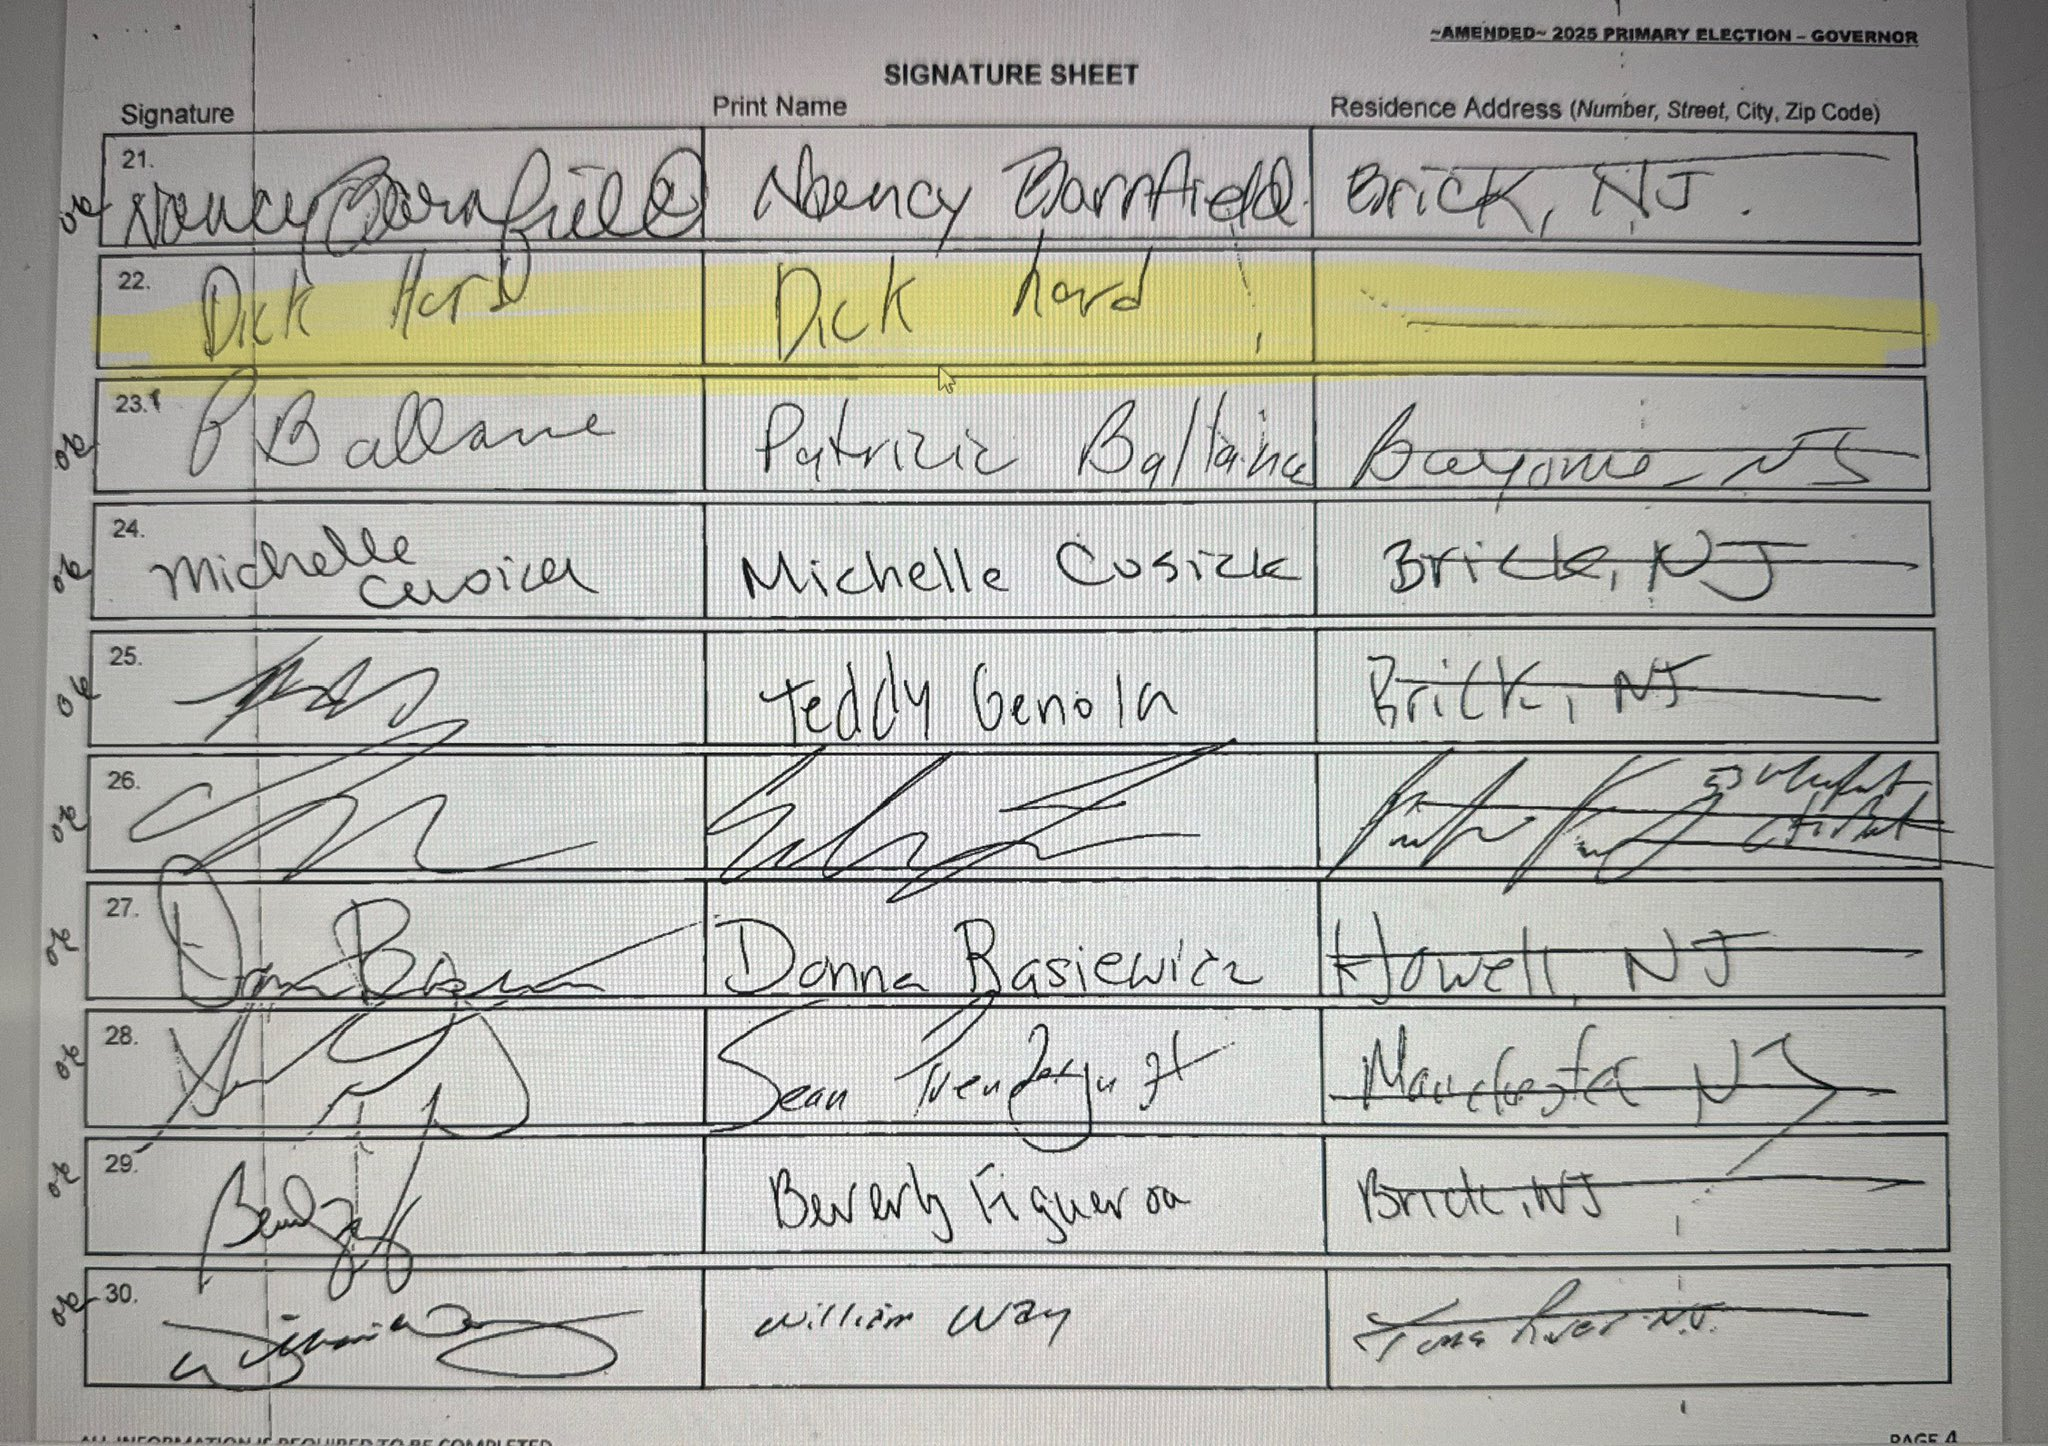 ~AMENDED~ 2025 PRIMARY ELECTION – GOVERNOR
SIGNATURE SHEET
Signature Print Name Residence Address (Number, Street, City, Zip Code)
21. Nancy Barnfield Nancy Barnfield Brick, NJ.
22. Dick Hard Dick hard
23. P Ballane Patrizic Baltaina Bayonne, NJ
24. Michelle Cusick Michelle Cusick Brick, NJ
25. Teddy Genola Brick, NJ
26.
27. Donna Basiewicz Howell, NJ
28. Sean Manchester NJ
29. Beverly Figueroa Brick, NJ
30. William Way Toms River N.J.
ALL INFORMATION IS REQUIRED TO BE COMPLETED
PAGE 4